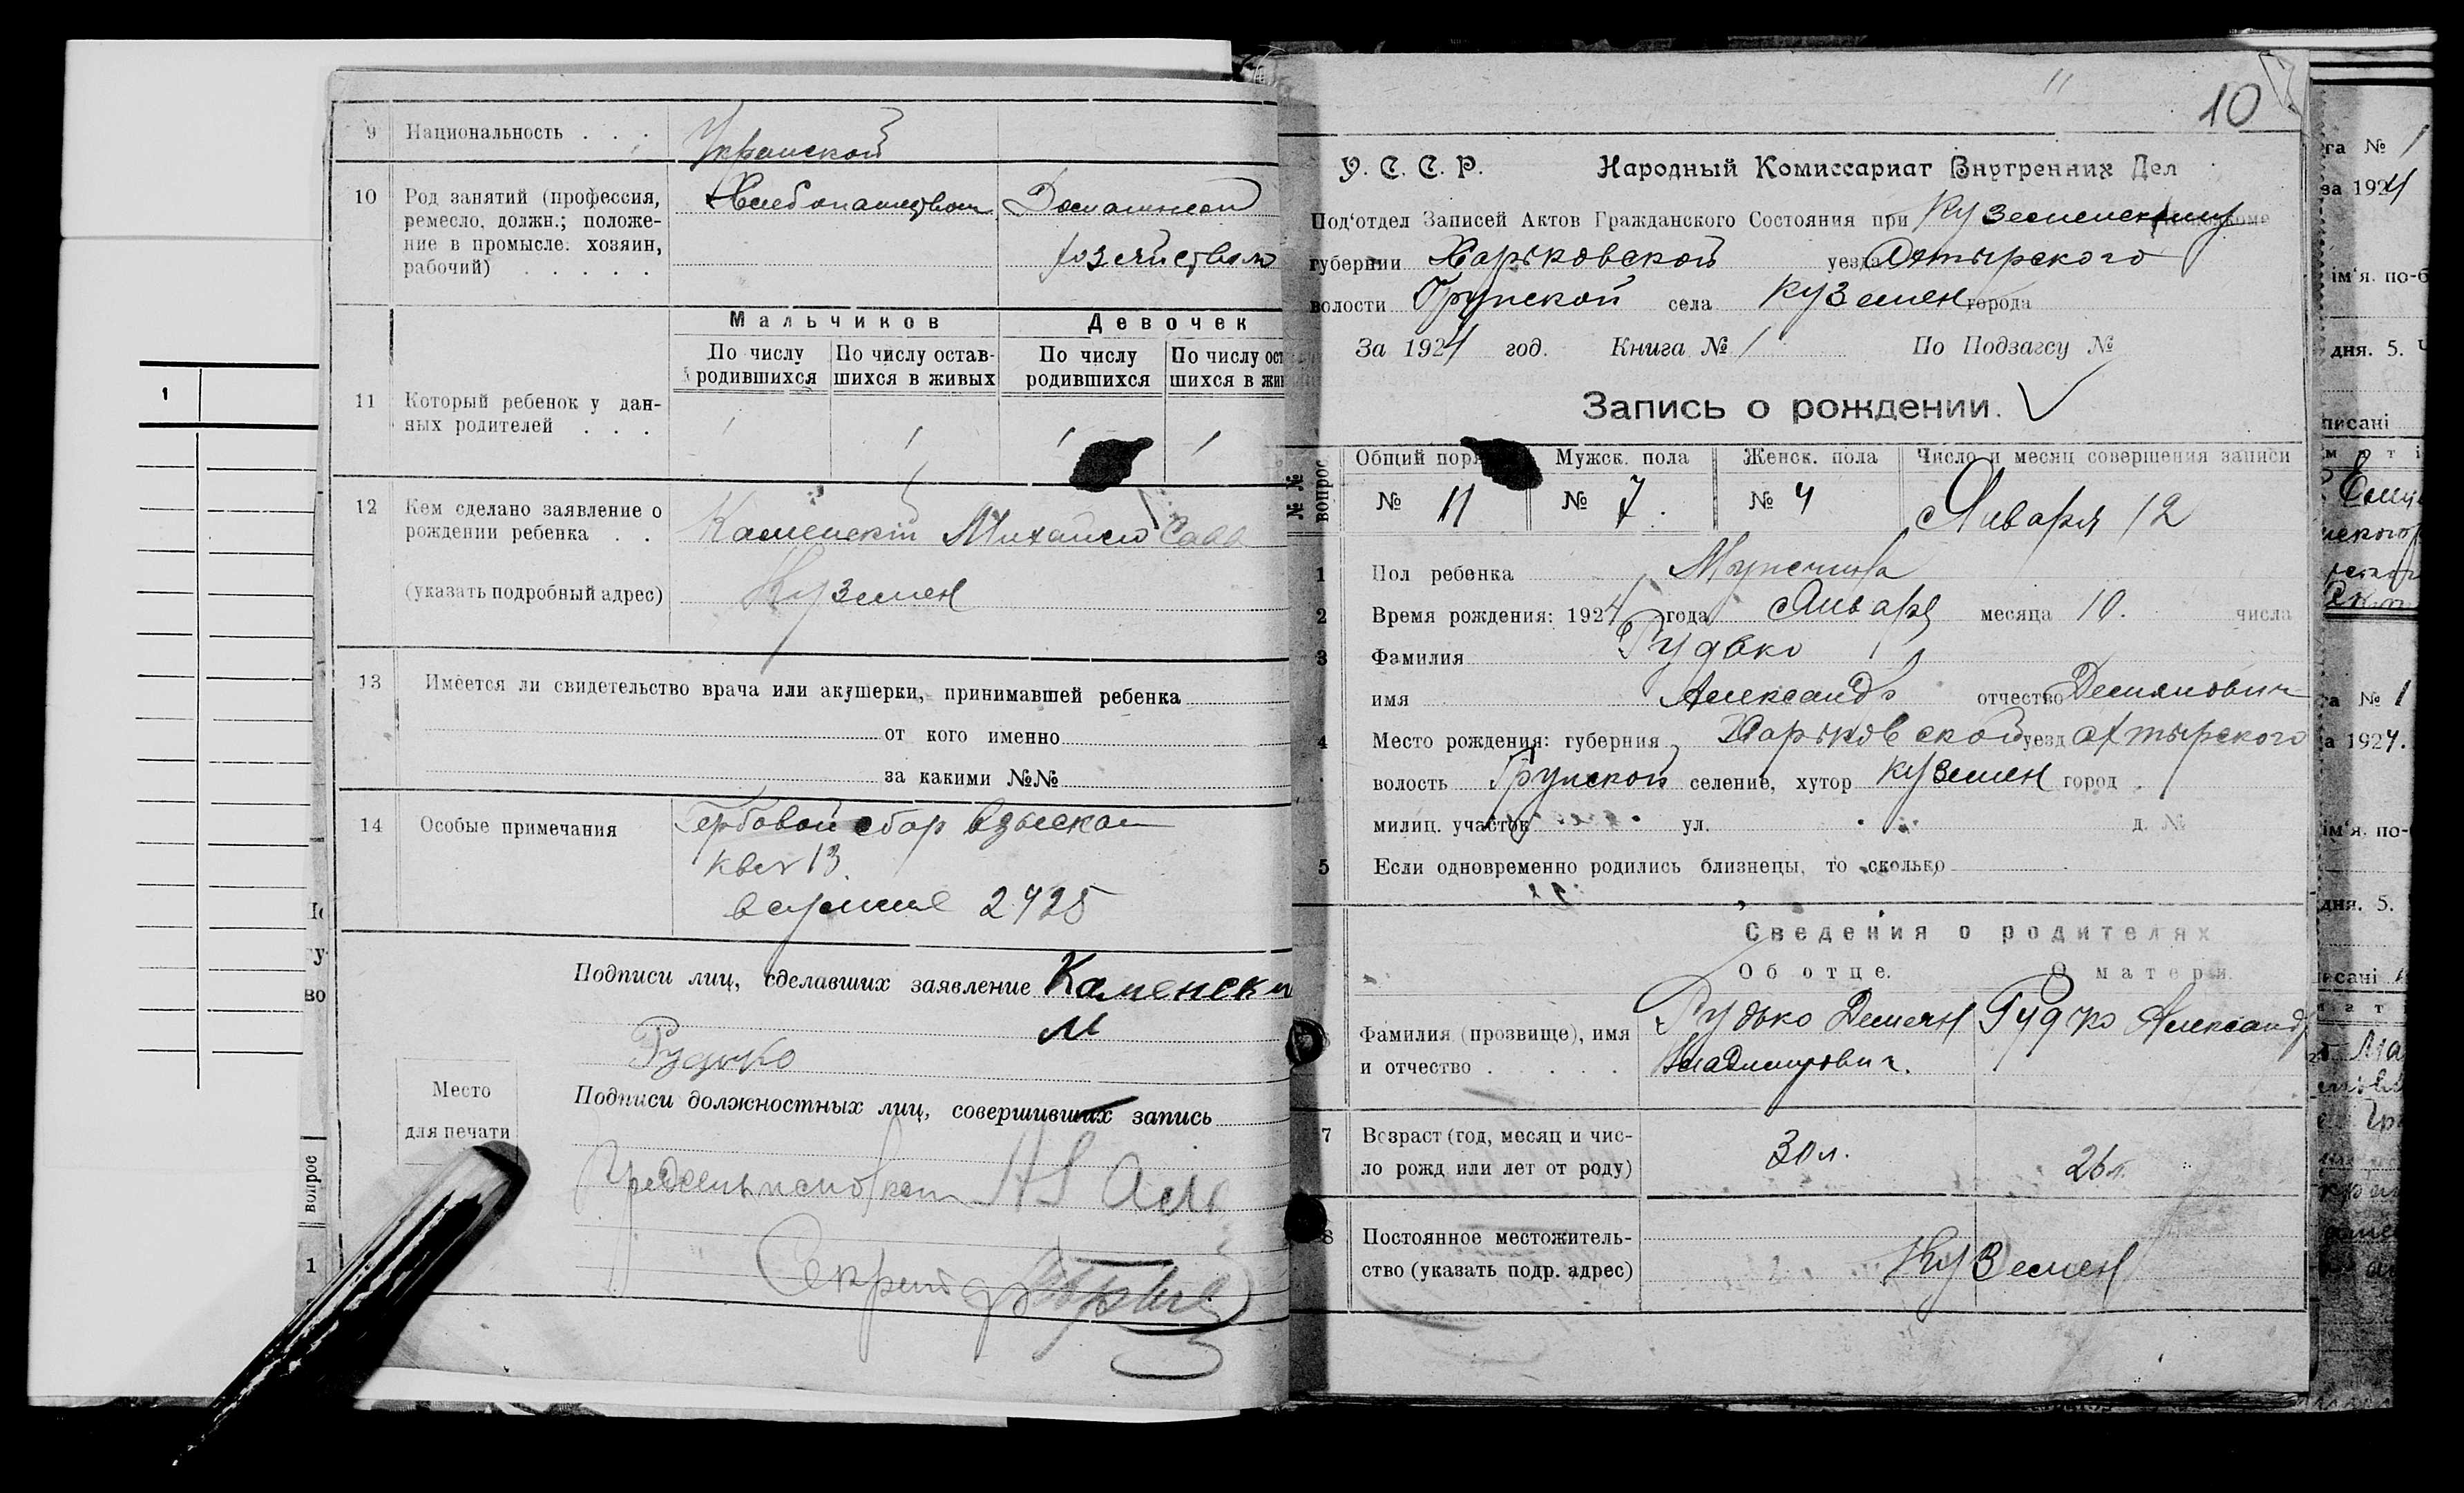 9 Национальность . . .
Украинской
10 Род занятий (профессия,
ремесло, должн.; положе-
ние в промысле: хозяин,
рабочий) . . . . .
Хлебопашеством
Домашном
хозяйством
Мальчиков
Девочек
По числу
родившихся
По числу остав-
шихся в живых
По числу
родившихся
По числу ост
шихся в жи
11 Который ребенок у дан-
ных родителей . . .
1 1 1 1
12 Кем сделано заявление о
рождении ребенка . .
(указать подробный адрес)
Каменский Михайло Савв
Куземен
13 Имеется ли свидетельство врача или акушерки, принимавшей ребенка
от кого именно
за какими №№
14 Особые примечания
Гербовой сбор взыскан
кв 13
в сумме 2425
Подписи лиц, сделавших заявление Каменски
М
Рудько
Место
для печати
Подписи должностных лиц, совершивших запись
Секретарь
вопрос
1
10
У. С. С. Р. Народный Комиссариат Внутренних Дел
Под'отдел Записей Актов Гражданского Состояния при Куземенскому
губернии Харьковской уезда Ахтырского
волости Грунской села Куземен города
За 1924 год. Книга № 1 По Подзагсу №
Запись о рождении.
№№ вопрос
Общий пор
Мужск. пола
Женск. пола
Число и месяц совершения записи
№ 11 № 7. № 4 Января 12
1 Пол ребенка Мужчина
2 Время рождения: 1924 года Января месяца 10. числа
3 Фамилия Рудько
имя Александр отчество Демянович
4 Место рождения: губерния Харьковской уезд Ахтырского
волость Грунской селение, хутор Куземен город
милиц. участок ул. д. №
5 Если одновременно родились близнецы, то сколько
Сведения о родителях
Об отце. О матери.
Фамилия (прозвище), имя
и отчество . . . .
Рудько Демян
Владимирович.
Рудько Александр
7 Возраст (год, месяц и чис-
ло рожд или лет от роду)
30 л.
26 л.
8 Постоянное местожитель-
ство (указать подр. адрес)
Куземен
га № 1
за 1924
ім'я. по-б
дня. 5. Ч
писані
№ 1
а 1924.
ім'я. по-
дня. 5.